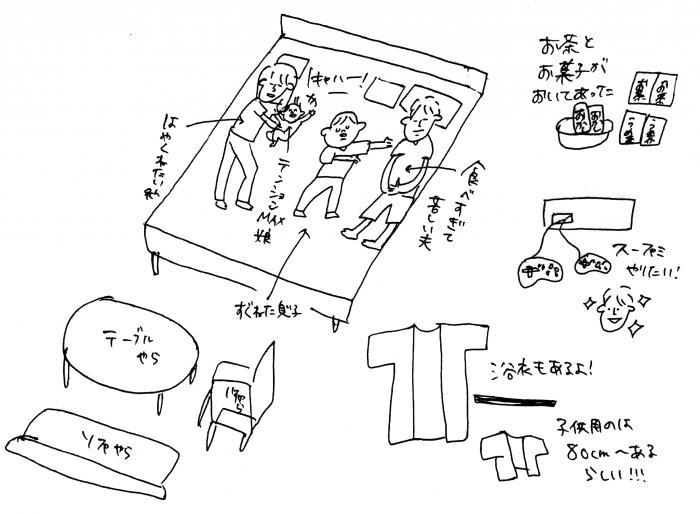 お茶と
お菓子が
おいてあった
お茶
お茶
キャハー！
はやくねたい私
テンション
MAX
娘
食べすぎて
苦しい夫
すぐねた息子
スーファミ
やりたい！
テーブル
やら
ソファやら
浴衣もあるよ！
子供用のは
80cm〜ある
らしい！！！